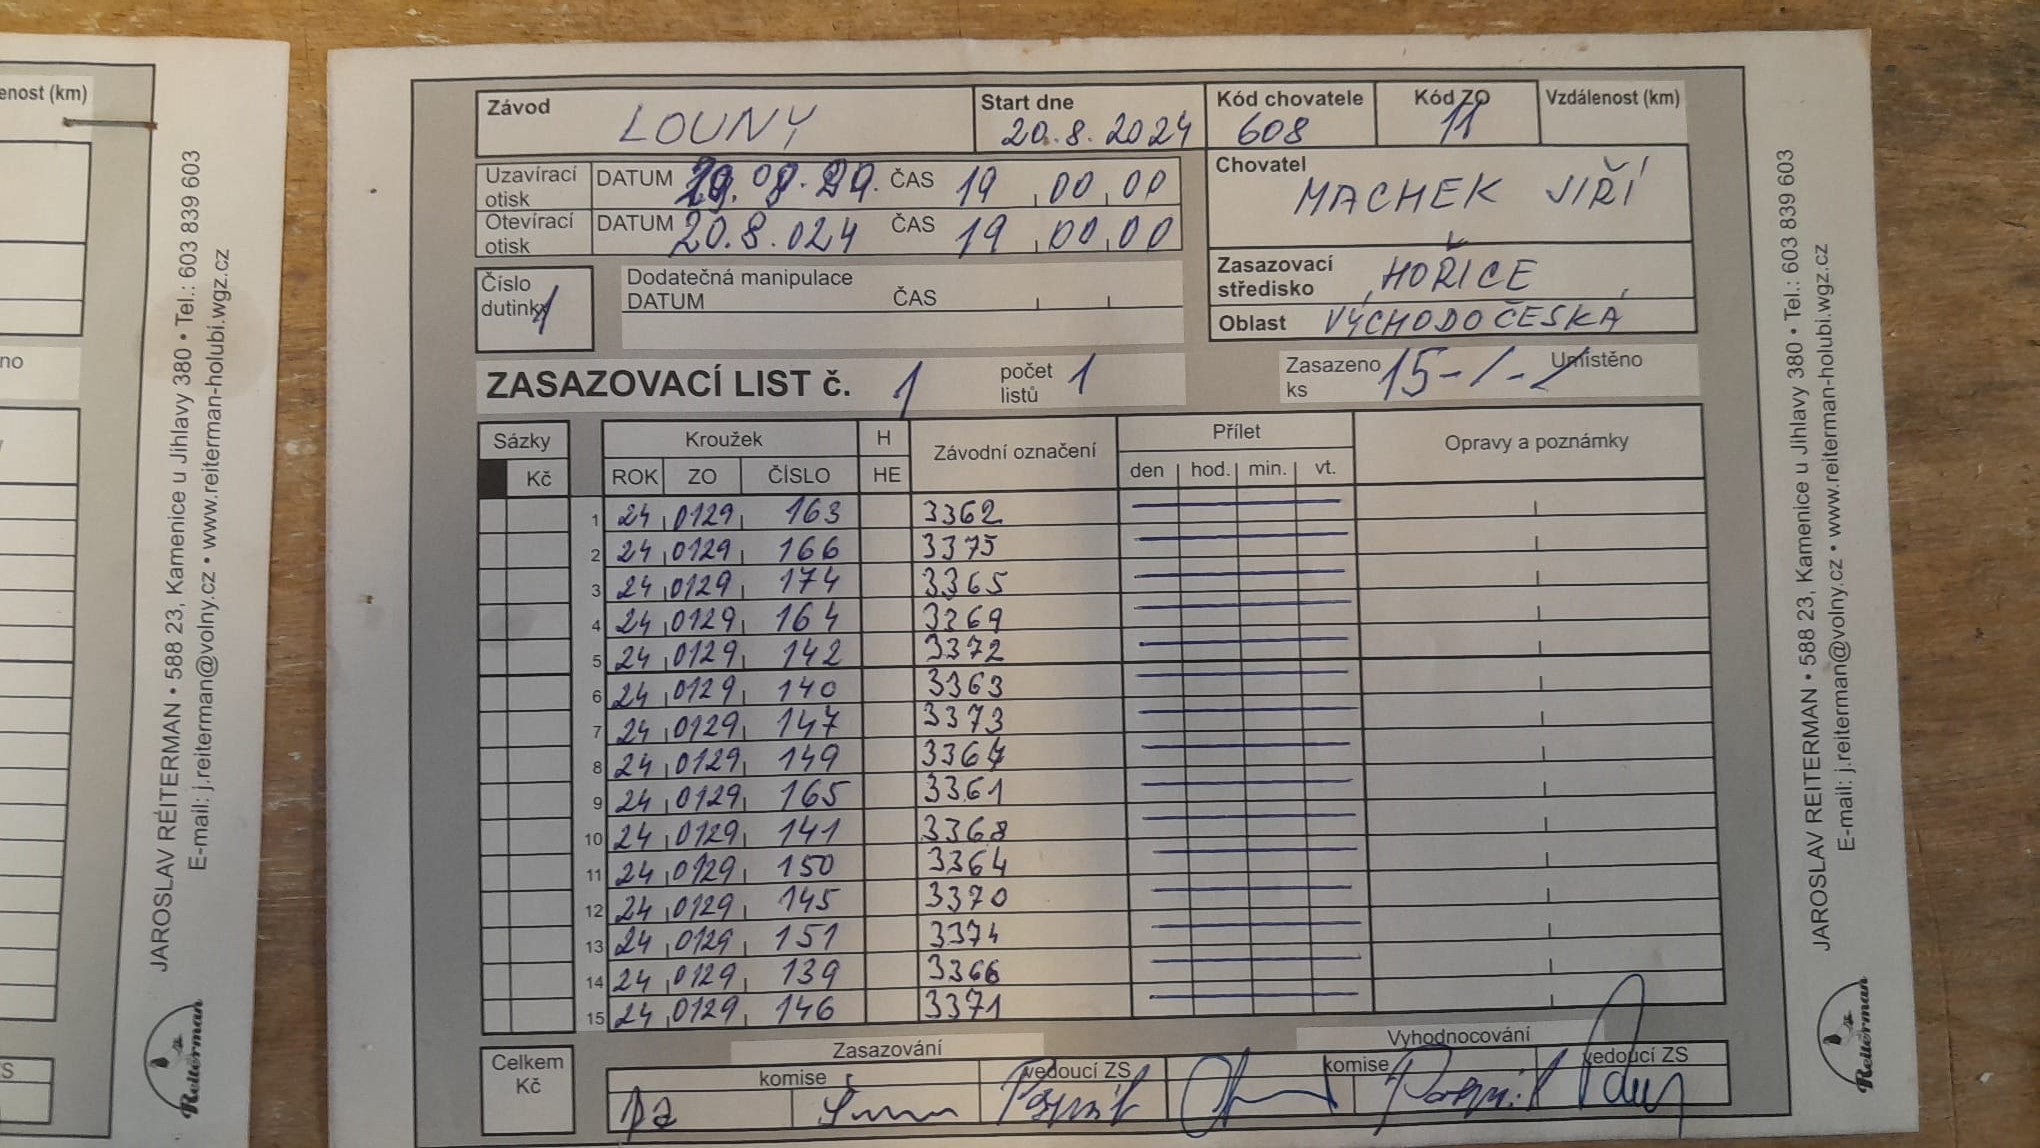 enost (km)
no
S
JAROSLAV REITERMAN • 588 23, Kamenice u Jihlavy 380 • Tel.: 603 839 603
E-mail: j.reiterman@volny.cz • www.reiterman-holubi.wgz.cz
Reiterman
Závod LOUNY Start dne 20.8.2024 Kód chovatele 608 Kód ZO 11 Vzdálenost (km)
Uzavírací otisk DATUM ČAS 19 00 00
Otevírací otisk DATUM 20.8.024 ČAS 19 00 00
Chovatel MACHEK JIŘÍ
Číslo dutinky 1
Dodatečná manipulace
DATUM ČAS
Zasazovací středisko HOŘICE
Oblast VÝCHODOČESKÁ
ZASAZOVACÍ LIST č. 1 počet listů 1 Zasazeno ks 15-1- Umístěno
Sázky Kroužek H Závodní označení Přílet Opravy a poznámky
Kč ROK ZO ČÍSLO HE den hod. min. vt.
1 24 0129 163 3362
2 24 0129 166 3375
3 24 0129 174 3365
4 24 0129 164 3369
5 24 0129 142 3372
6 24 0129 140 3363
7 24 0129 147 3373
8 24 0129 149 3367
9 24 0129 165 3361
10 24 0129 141 3368
11 24 0129 150 3364
12 24 0129 145 3370
13 24 0129 151 3374
14 24 0129 139 3366
15 24 0129 146 3371
Celkem Kč
Zasazování Vyhodnocování
komise vedoucí ZS komise vedoucí ZS
JAROSLAV REITERMAN • 588 23, Kamenice u Jihlavy 380 • Tel.: 603 839 603
E-mail: j.reiterman@volny.cz • www.reiterman-holubi.wgz.cz
Reiterman